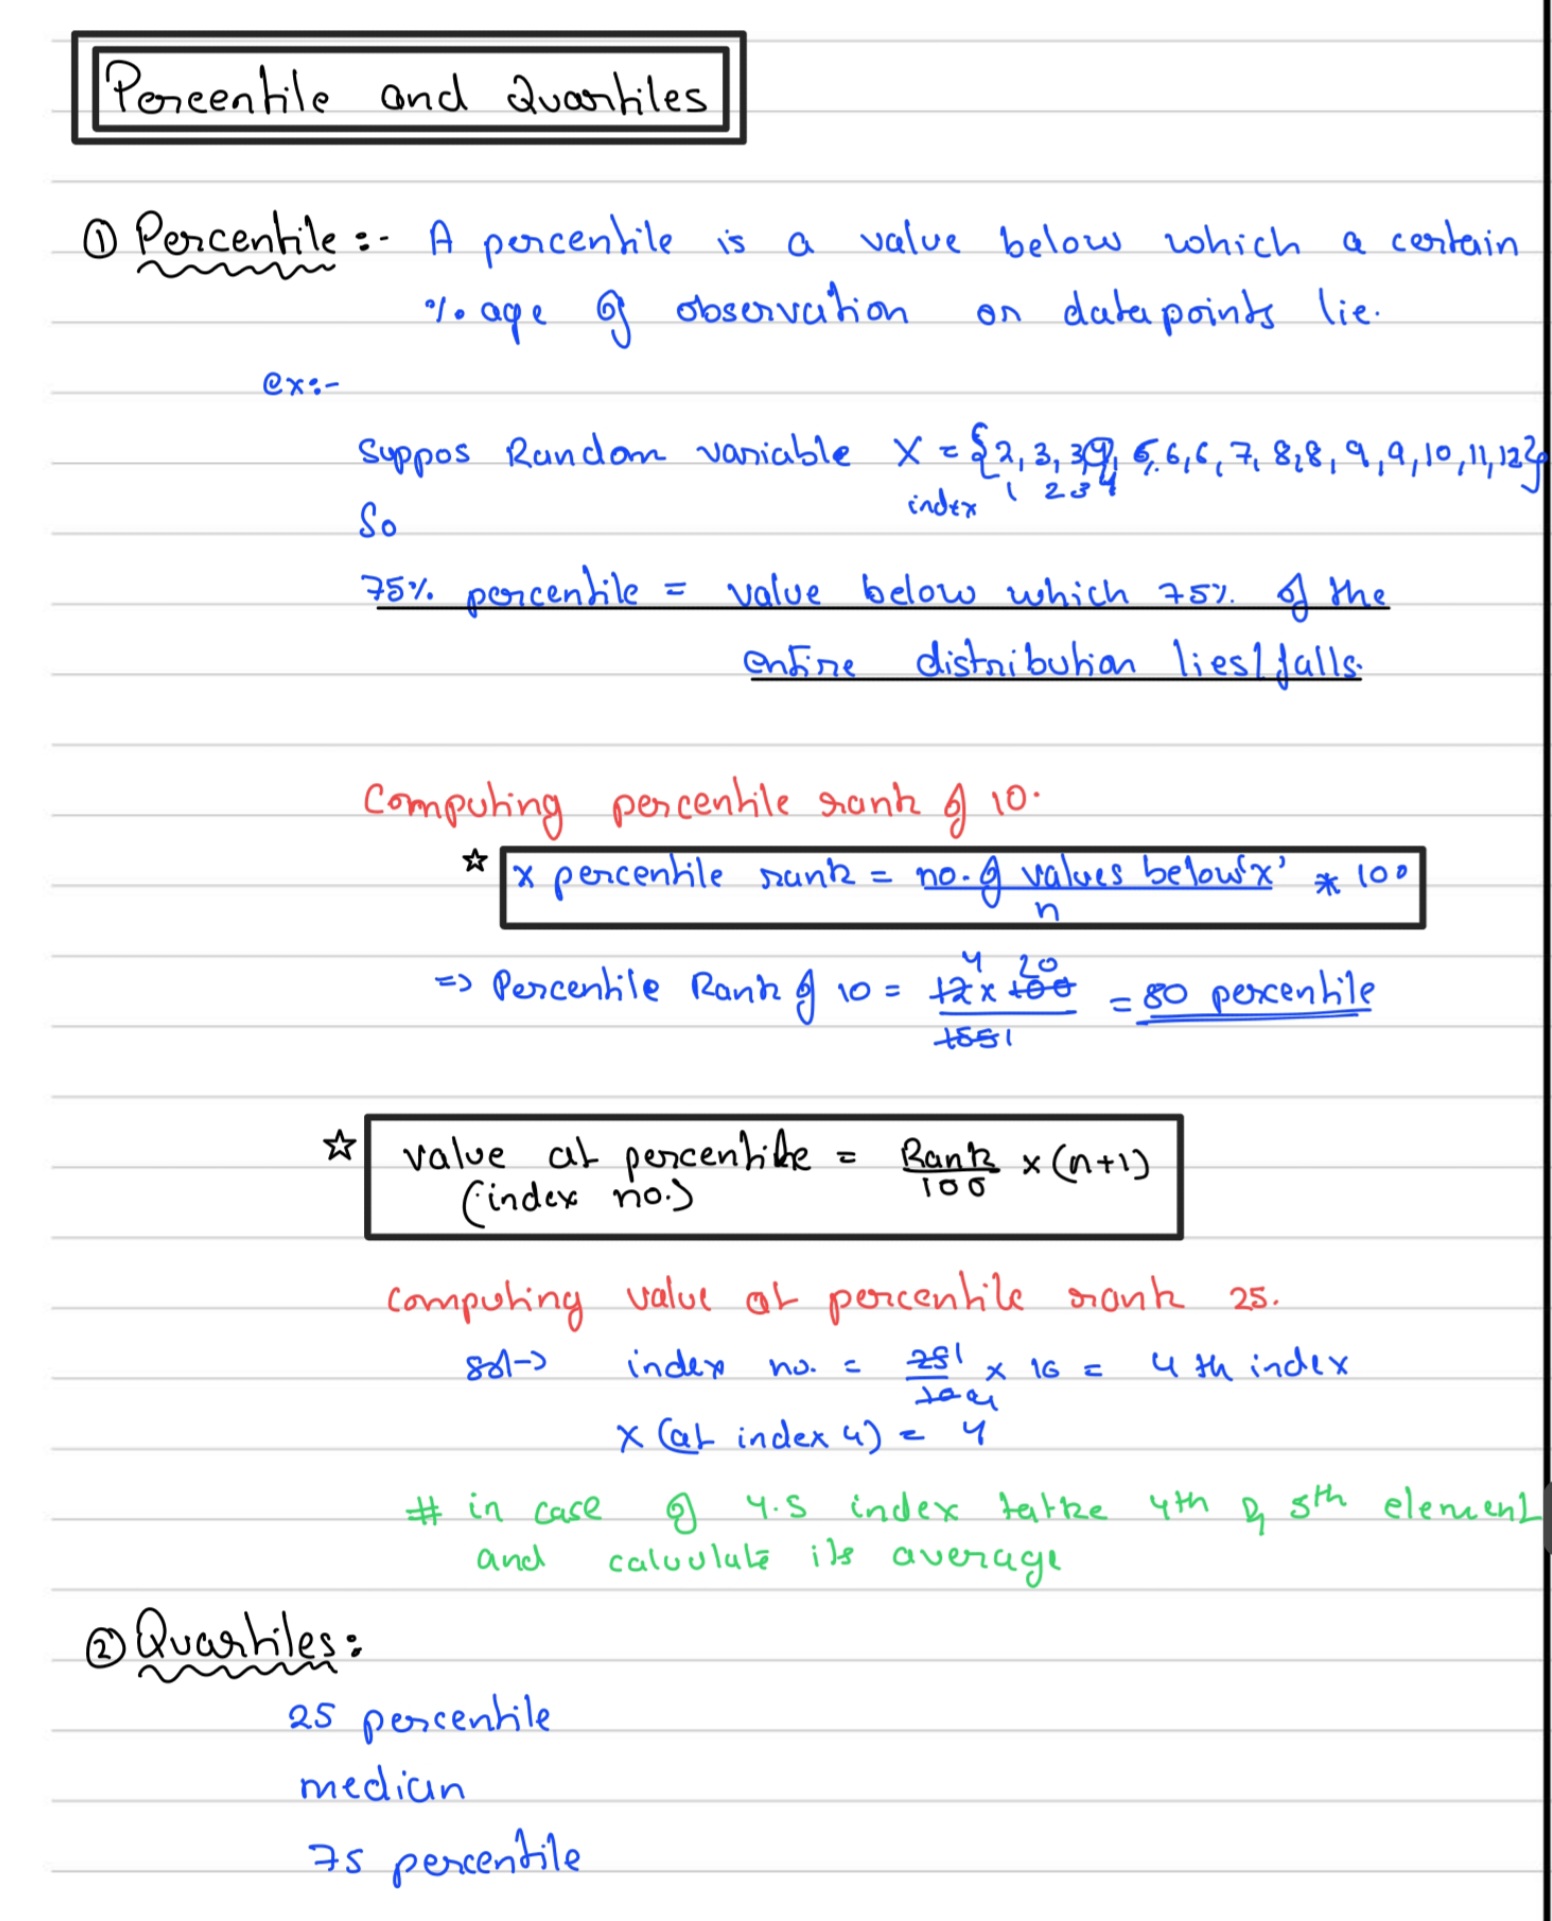 Percentile and Quartiles
① Percentile :- A percentile is a value below which a certain
%age of observation or datapoints lie.
ex:-
Suppos Random variable X = {2, 3, 3, 4, 5, 6, 6, 7, 8, 8, 9, 9, 10, 11, 12}
index 1 2 3 4
So
75% percentile = value below which 75% of the
entire distribution lies/falls.
Computing percentile rank of 10.
☆ x percentile rank = no. of values below 'x' * 100
n
4 20
=> Percentile Rank of 10 = 12 x 100 = 80 percentile
15 1
☆ value at percentile = Rank/100 x (n+1)
(index no.)
computing value at percentile rank 25.
sol-> index no. = 25 1 x 16 = 4 th index
100 4
x (at index 4) = 4
# in case of 4.5 index take 4th & 5th element
and calculate its average
② Quartiles:
25 percentile
median
75 percentile